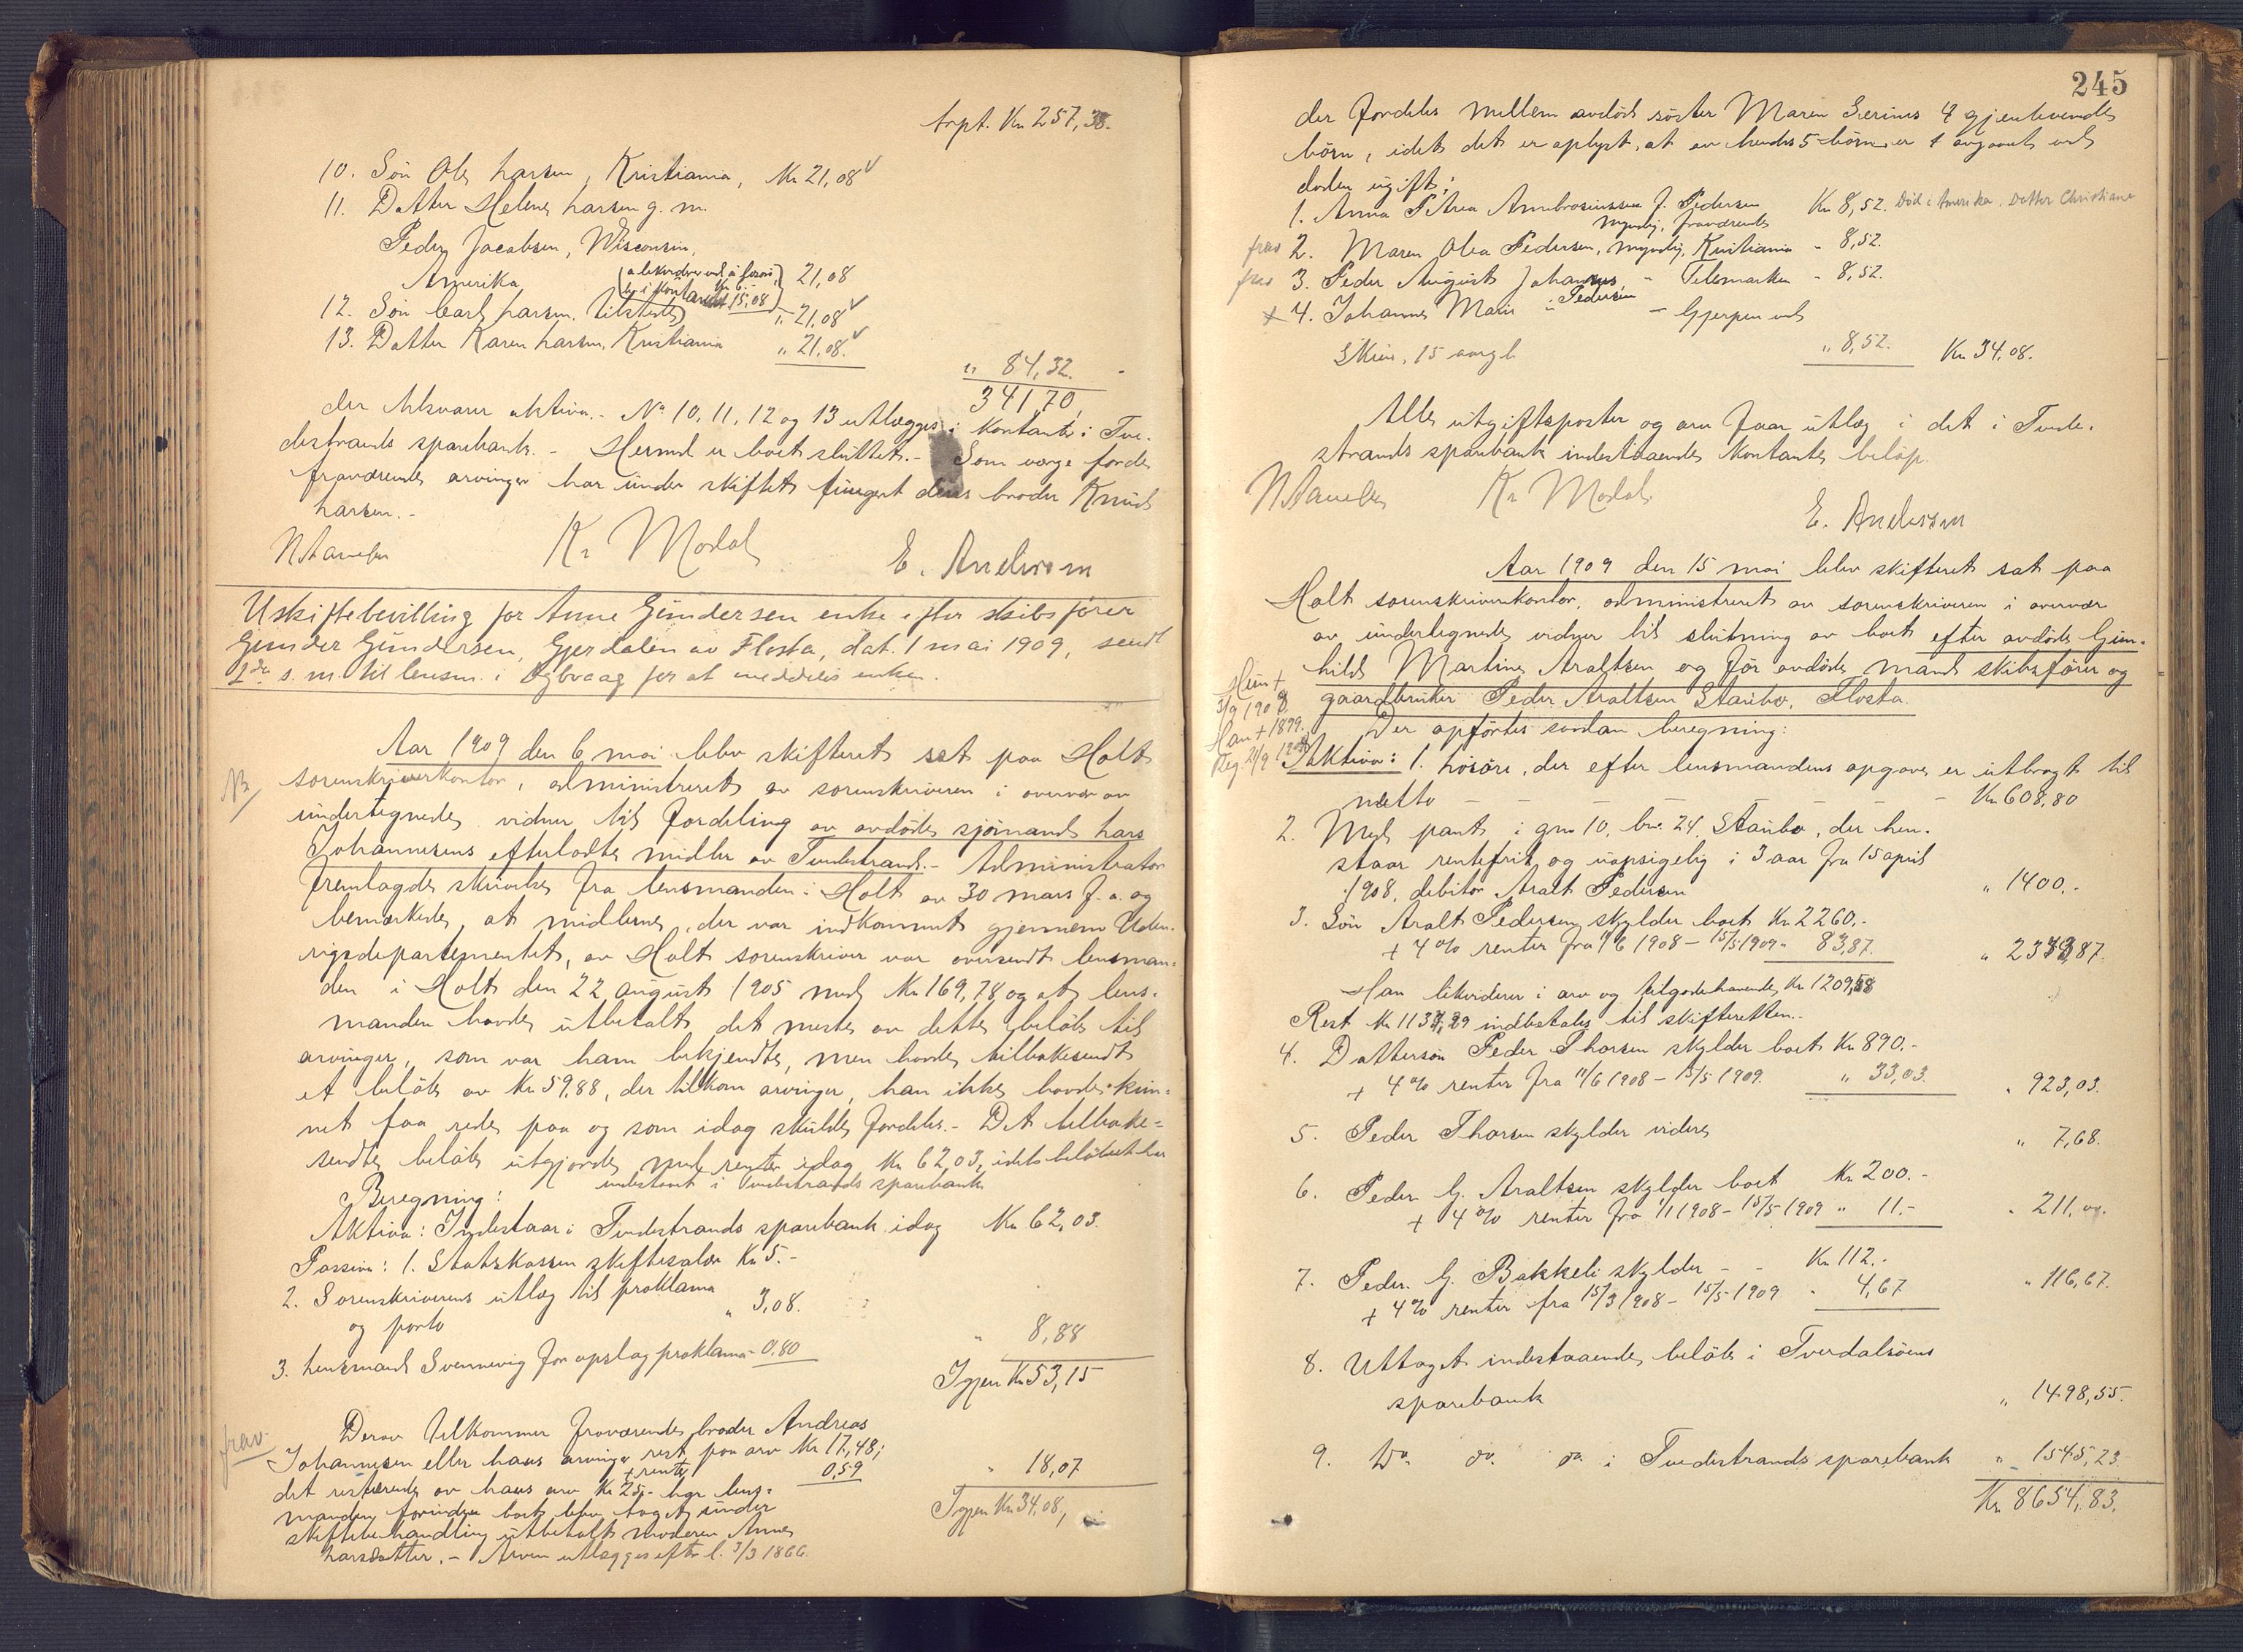 trpt. Kr 257,38.
10. Søn Ole Larsen, Kristiania, Kr 21,08 ✓
11. Datter Helene Larsen g. m.
Peder Jacobsen, Wisconsin,
Amerika, 21,08
12. Søn Carl Larsen, tilstede „ 21,08 ✓
13. Datter Karen Larsen, Kristiania „ 21,08 ✓
„ 84,32.
341,70
der tilsvarer aktiva. - No 10, 11, 12 og 13 utlægges i kontanter i Tve-
destrands sparebank. - Hermed er boet sluttet. - Som værge for de
fraværende arvinger har under skiftet fungert deres broder Knud
Larsen. -
Kr Modal E. Andersen
Uskiftebevilling for Anne Gundersen enke efter skibsfører
Gunder Gundersen, Gjerdalen av Flosta, dat. 1 mai 1909, sendt
s. m. til lensm. i Dybvaag for at meddeles enken.
Aar 1909 den 6 mai blev skifteret sat paa Holt
sorenskriverkontor, administreret av sorenskriveren i overvær av
undertegnede vidner til fordeling av avdøde sjømand Lars
Johannesens efterladte midler av Tvedestrand. - Administrator
fremlagde skrivelse fra lensmanden i Holt av 30 mars f. a. og
bemærkede, at midlerne, der var indkommet gjennem Uden-
rigsdepartementet, av Holt sorenskriver var oversendt lensman-
den i Holt den 22 august 1905 med Kr 169,78 og at lens-
manden havde utbetalt det meste av dette beløb til
arvinger, som var ham bekjendte, men havde tilbakesendt
et beløb av Kr 59,88, der tilkom arvinger, han ikke havde kun-
net faa rede paa og som idag skulde fordeles. - Det tilbake-
sendte beløb utgjorde med renter idag Kr 62,03, idet beløbet har
indestaaet i Tvedestrands sparebank
Beregning:
Aktiva: Indestaar i Tvedestrands sparebank idag Kr 62,03.
Passiva: 1. Statskassen skiftesalær Kr 5.-
2. Sorenskriverens utlæg til proklama
og porto „ 3,08.
3. Lensmand Svennevig for opslag proklama - 0.80 „ 8,88
Igjen Kr 53,15
frav. Derav tilkommer fraværende broder Andreas
Johannesen eller hans arvinger rest paa arv Kr 17,48;
+ renter 0,59 „ 18,07
det resterende av hans arv Kr 25,- har lens-
manden forinden boet blev taget under Igjen Kr 34,08,
skiftebehandling utbetalt moderen Anne
Larsdatter. - Arven utlægges efter l. 3/3 1866.
245
der fordeles mellem avdødes søster Maren Serines 4 gjenlevende
børn, idet det er oplyst, at av hendes 5 børn er 1 avgaaet ved
døden ugift:
1. Anna Petrea Ambrosiussen f. Pedersen Kr 8,52. Død i Amerika, Datter Christiane
myndig, fraværende
frav 2. Maren Olea Pedersen, myndig, Kristiania - 8,52.
frav 3. Peder August Johannes - Telemarken - 8,52.
Pedersen
+ 4. Johanne Marie - Gjerpen ved
Skien, 15 aar gl. „ 8,52. Kr 34,08.
Alle utgiftsposter og arv faar utlæg i det i Tvede-
strands sparebank indestaaende kontante beløp.
Kr Modal E. Andersen
Aar 1909 den 15 mai blev skifteret sat paa
Holt sorenskriverkontor, administreret av sorenskriveren i overvær
av undertegnede vidner til slutning av boet efter avdøde Gun-
hild Martine Araltsen og før avdøde mand skibsfører og
gaardbruker Peder Araltsen Staubo, Flosta.
Hun +
3/9 1908
Han + 1899.
Der opførtes saadan beregning:
Aktiva: 1. Løsøre, der efter lensmandens opgave er utbragt til
netto - - - - - - Kr 608,80
2. Med pant i gno 10, bno 24, Staubo, der hen-
staar rentefrit og uopsigelig i 3 aar fra 15 april
1908, debitor Aralt Pedersen „ 1400.-
3. Søn Aralt Pedersen skylder boet Kr 2260.-
+ 4% renter fra 11/6 1908 - 15/5 1909 „ 83,87. „ 2343,87.
Han likviderer i arv og tilgodehavende Kr 1209,58
Rest Kr 1134,29 indbetales til skifteretten.-
4. Dattersøn Peder Thorsen skylder boet Kr 890.-
+ 4% renter fra 11/6 1908 - 15/5 1909. „ 33,03. „ 923,03.
5. Peder Thorsen skylder videre „ 7,68.
6. Peder G. Araltsen skylder boet Kr 200.-
+ 4% renter fra 1/1 1908 - 15/5 1909 „ 11.- „ 211,00.
7. Peder G. Bakkeli skylder - - Kr 112.-
+ 4% renter fra 15/3 1908 - 15/5 1909 „ 4,67 „ 116,67.
8. Uttaget indestaaende beløb i Tverdalsøens
sparebank „ 1498,55.
9. Do. do. do. i Tvedestrands sparebank „ 1545,23.
Kr 8654,83.